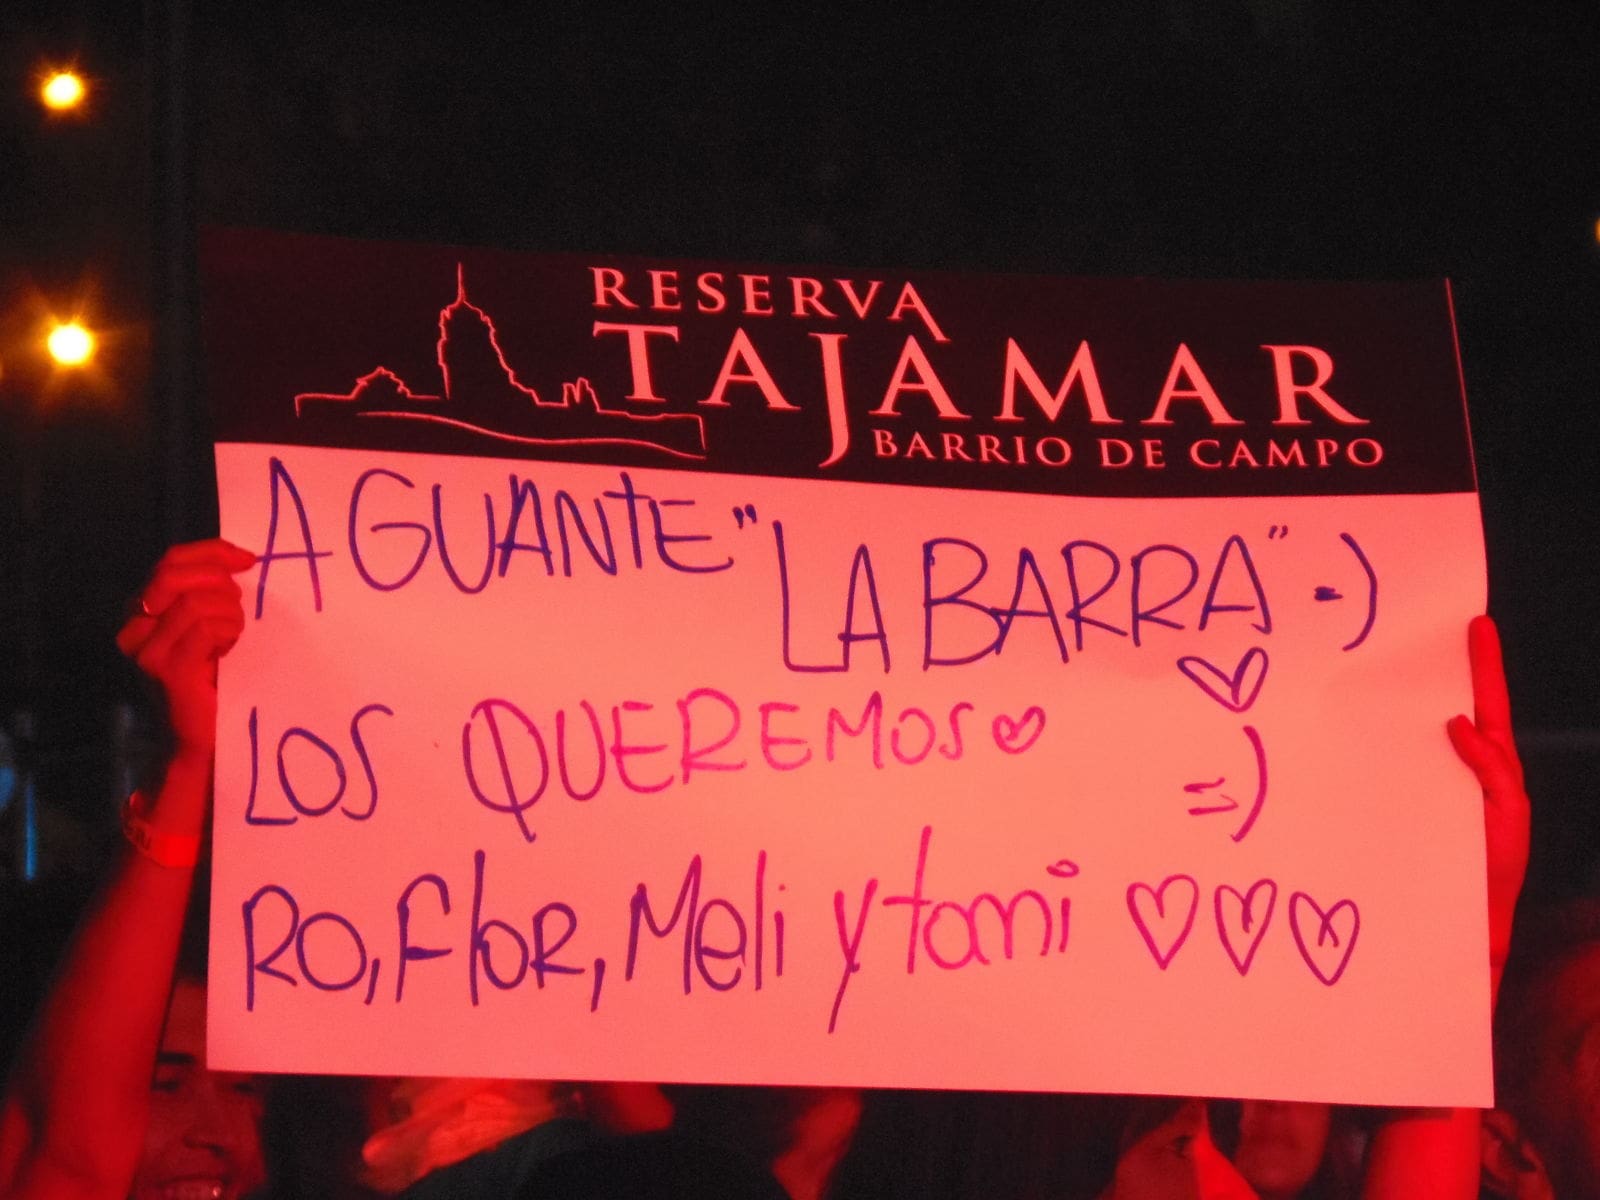 RESERVA
TAJAMAR
BARRIO DE CAMPO
AGUANTE "LA BARRA" =)
LOS QUEREMOS
=)
RO, Flor, Meli y tami